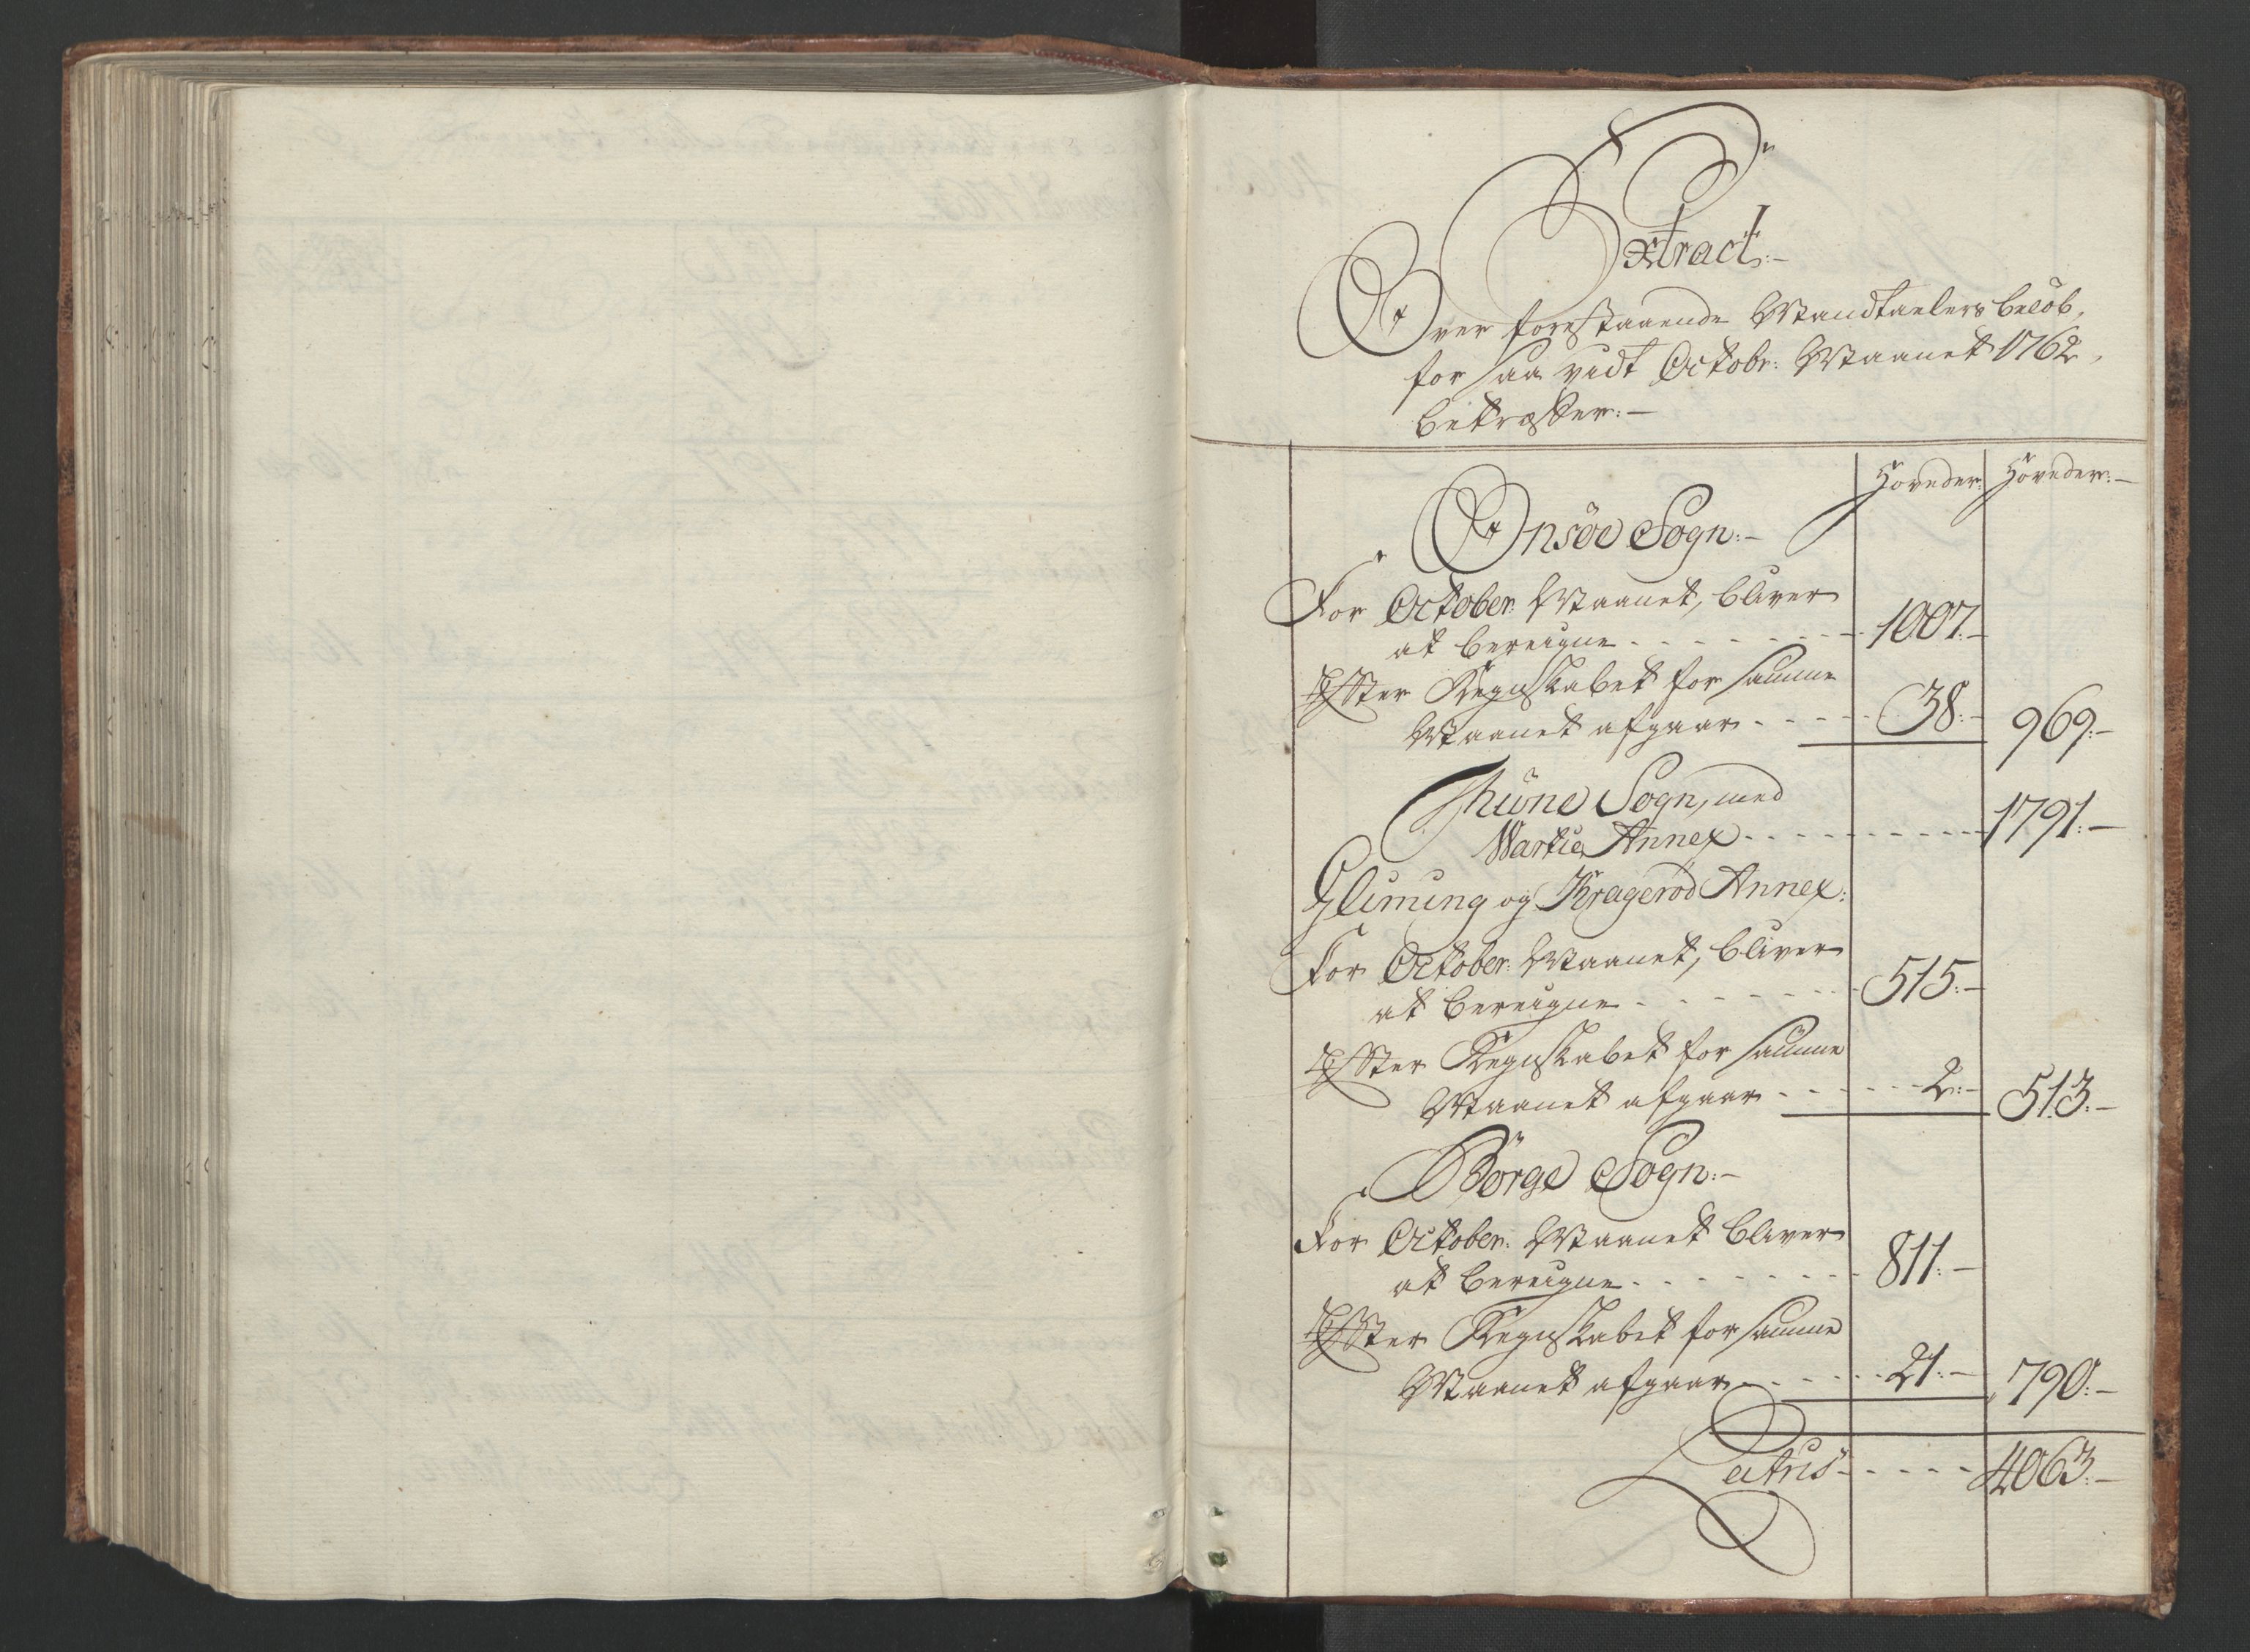 Extract:-
Over forestaaende Mandtaelers belöb,
for saa vidt Octobr: Maanet 1762,
betræffer:-
Hoveder: Höveder:-
Onsöe Sogn:-
For October: Maanet, bliver
at bereigne - - - - - - - - 1007:-
Efter Regnskabet for samme
Maanet afgaar - - - - - 38:- 969:-
Thune Sogn, med
Warteig Annex - - - - - - - - - - 1791:-
Glimming og Kragerød Annex:
For October: Maanet, bliver
at bereigne - - - - - - - - 515:-
Efter Regnskabet for samme
Maanet afgaar - - - - - - 2:- 513:-
Börge Sogn:-
For October: Maanet bliver
at bereigne - - - - - - - - 811:-
Efter Regnskabet for samme
Maanet afgaar - - - - - - 21:- 790:-
Latus - - - - - 4063:-